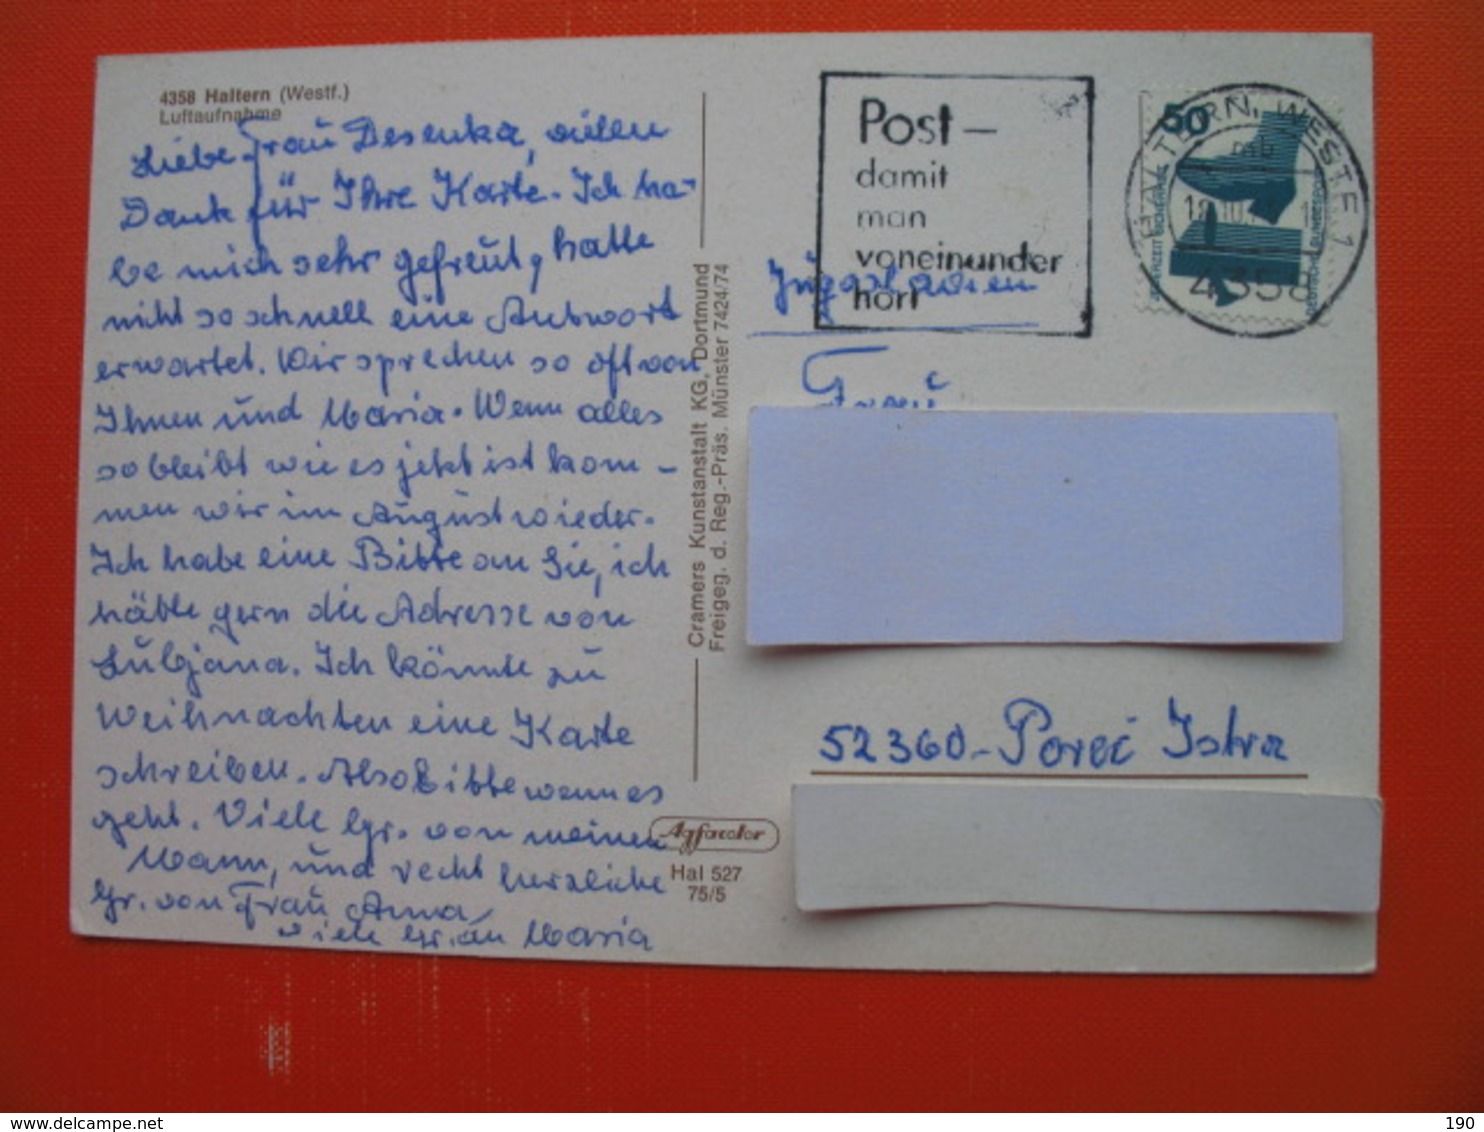 4358 Haltern (Westf.)
Luftaufnahme
Liebe Frau Desenka, vielen
Dank für Ihre Karte. Ich ha-
be mich sehr gefreut, hatte
nicht so schnell eine Antwort
erwartet. Wir sprechen so oft von
Ihnen und Maria. Wenn alles
so bleibt wie es jetzt ist kom-
men wir im August wieder.
Ich habe eine Bitte an Sie, ich
hätte gern die Adresse von
Lubjana. Ich könnte zu
Weihnachten eine Karte
schreiben. Also bitte wenn es
geht. Viele Gr. von meinen
Mann, und recht herzliche
Gr. von Frau Anna
Viele Gr. an Maria
Cramers Kunstanstalt KG, Dortmund
Freigeg. d. Reg.-Präs. Münster 7424/74
Agfacolor
Hal 527
75/5
Post –
damit
man
voneinander
hört
50
HALTERN, WESTF 1
mb
4358
JEDERZEIT SICHERHEIT
DEUTSCHE BUNDESPOST
Jugoslavien
Frau
52360 - Poreč Istra
delcampe.net
zumbo
190